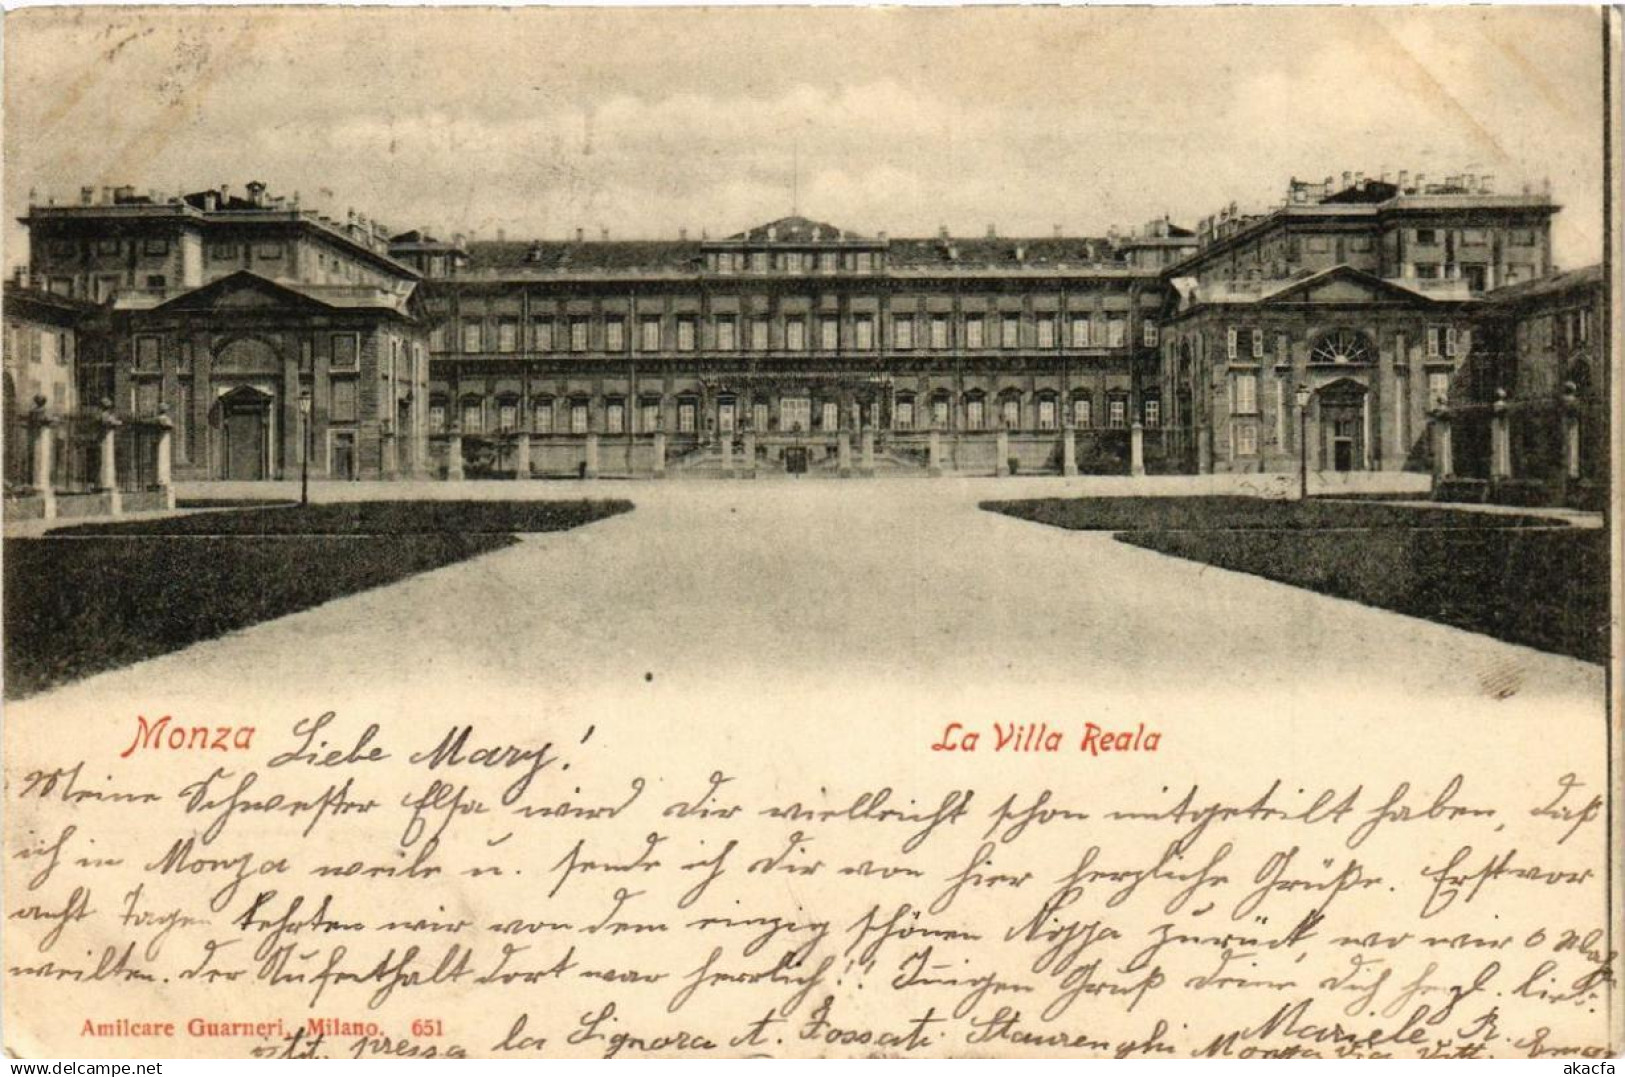 Monza Liebe Mary! La Villa Reala
Meine Schwester Elsa wird dir vielleicht schon mitgeteilt haben, daß
ich in Monza weile u. sende ich dir von hier herzliche Grüße. Erst vor
acht Tagen kehrten wir von dem einzig schönen Nizza zurück, wo wir 6
weilten. Der Aufenthalt dort war herrlich!! Innigen Gruß deine dich herzl. lieb.
Mariele R.
Amilcare Guarneri, Milano. 651
pressa la Signora A. Fossati Staurenghi Monza Via Vitt. Ema
akacfa